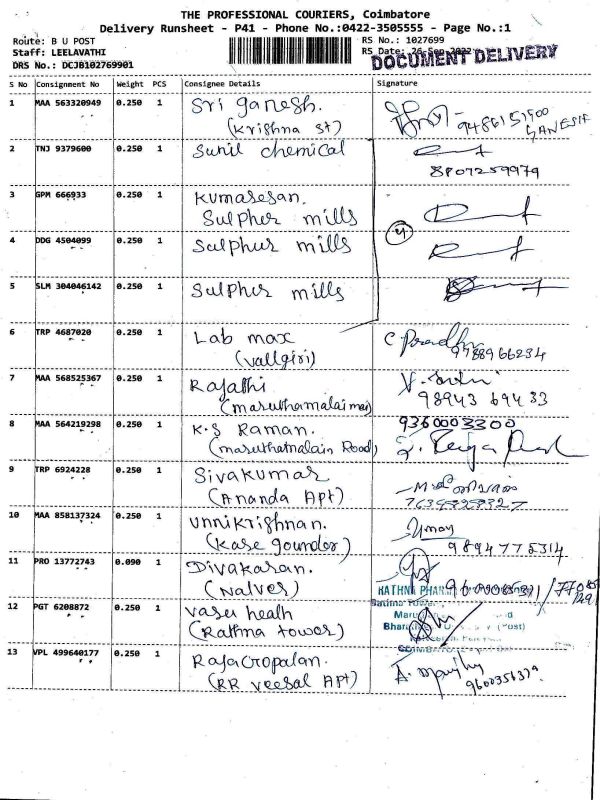 THE PROFESSIONAL COURIERS, Coimbatore
Delivery Runsheet - P41 - Phone No.:0422-3505555 - Page No.:1
Route: B U POST
RS No.: 1027699
Staff: LEELAVATHI
RS Date: 26-Sep-2022
DRS No.: DCJB102769901
DOCUMENT DELIVERY
S No Consignment No Weight PCS Consignee Details Signature
1 MAA 563320949 0.250 1 Sri ganesh.
(Krishna st)
GANESH
2 TNJ 9379600 0.250 1 Sunil chemical
8807259979
3 GPM 666933 0.250 1 Kumaresan.
Sulphur mills
4 DDG 4504099 0.250 1 Sulphur mills
5 SLM 304046142 0.250 1 Sulphur mills
6 TRP 4687020 0.250 1 Lab max
(Vallgiri)
7 MAA 568525367 0.250 1 Rajathi
(maruthamalai mai)
98943 69433
8 MAA 564219298 0.250 1 K.S Raman. 9360003300
(maruthamalain Road)
9 TRP 6924228 0.250 1 Sivakumar
(Ananda Apt)
10 MAA 858137324 0.250 1 Unnikrishnan.
(Kase gounder) 9894775314
11 PRO 13772743 0.090 1 Divakaran.
(Nalver)
RATHNA
12 PGT 6208872 0.250 1 Vasu heath
(Rathna tower)
(Post)
13 VPL 499640177 0.250 1 RajaGopalan.
(RR Veesal Apt)